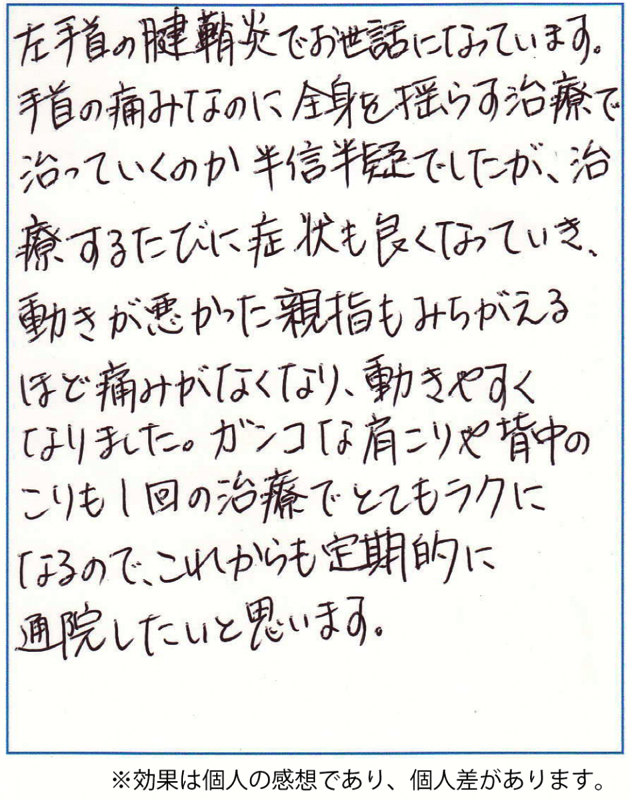 左手首の腱鞘炎でお世話になっています。
手首の痛みなのに全身を揺らす治療で
治っていくのか半信半疑でしたが、治
療するたびに症状も良くなっていき、
動きが悪かった親指もみちがえる
ほど痛みがなくなり、動きやすく
なりました。ガンコな肩こりや背中の
こりも1回の治療でとてもラクに
なるので、これからも定期的に
通院したいと思います。
※効果は個人の感想であり、個人差があります。